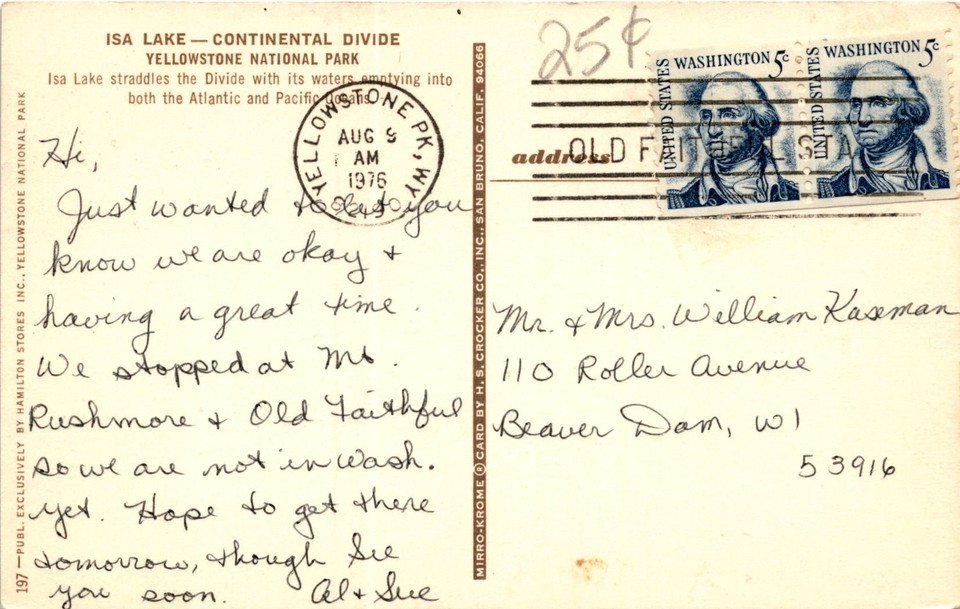 ISA LAKE — CONTINENTAL DIVIDE
YELLOWSTONE NATIONAL PARK
Isa Lake straddles the Divide with its waters emptying into
both the Atlantic and Pacific Oceans.
Hi,
Just wanted to let you
know we are okay +
having a great time.
We stopped at Mt.
Rushmore + Old Faithful
so we are not in Wash.
yet. Hope to get there
tomorrow, though See
you soon. Al + Sue
197 — PUBL. EXCLUSIVELY BY HAMILTON STORES INC., YELLOWSTONE NATIONAL PARK
YELLOWSTONE PK, WY
AUG 9
AM
1976
MIRRO-KROME ® CARD BY H. S. CROCKER CO., INC., SAN BRUNO, CALIF. 94066
25¢
UNITED STATES WASHINGTON 5c
UNITED STATES WASHINGTON 5c
OLD FAITHFUL STA
address
Mr. + Mrs. William Kaseman
110 Roller Avenue
Beaver Dam, WI
53916